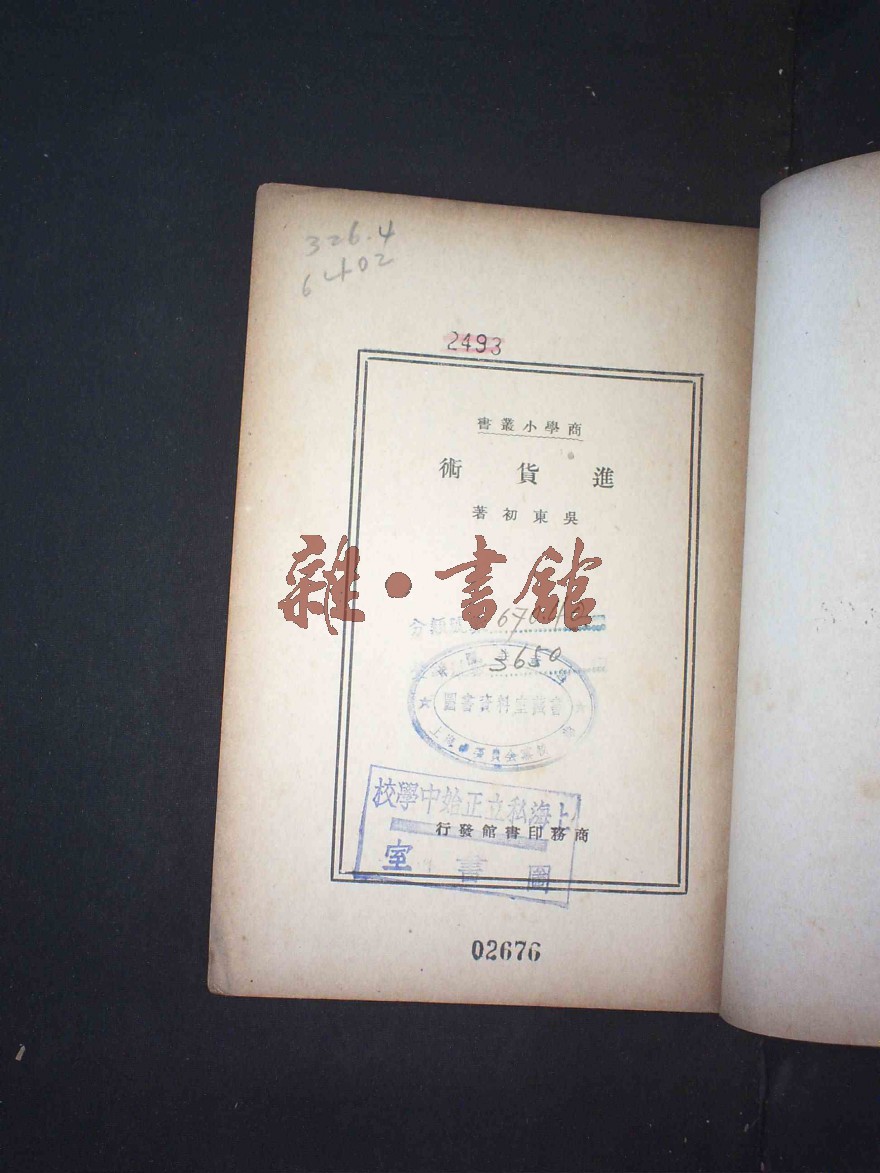 326.4
6402
2493
商學小叢書
進貨術
吳東初著
雜·書館
分類號
3650
圖書資料室藏書
上海私立正始中學校
商務印書館發行
圖書室
02676